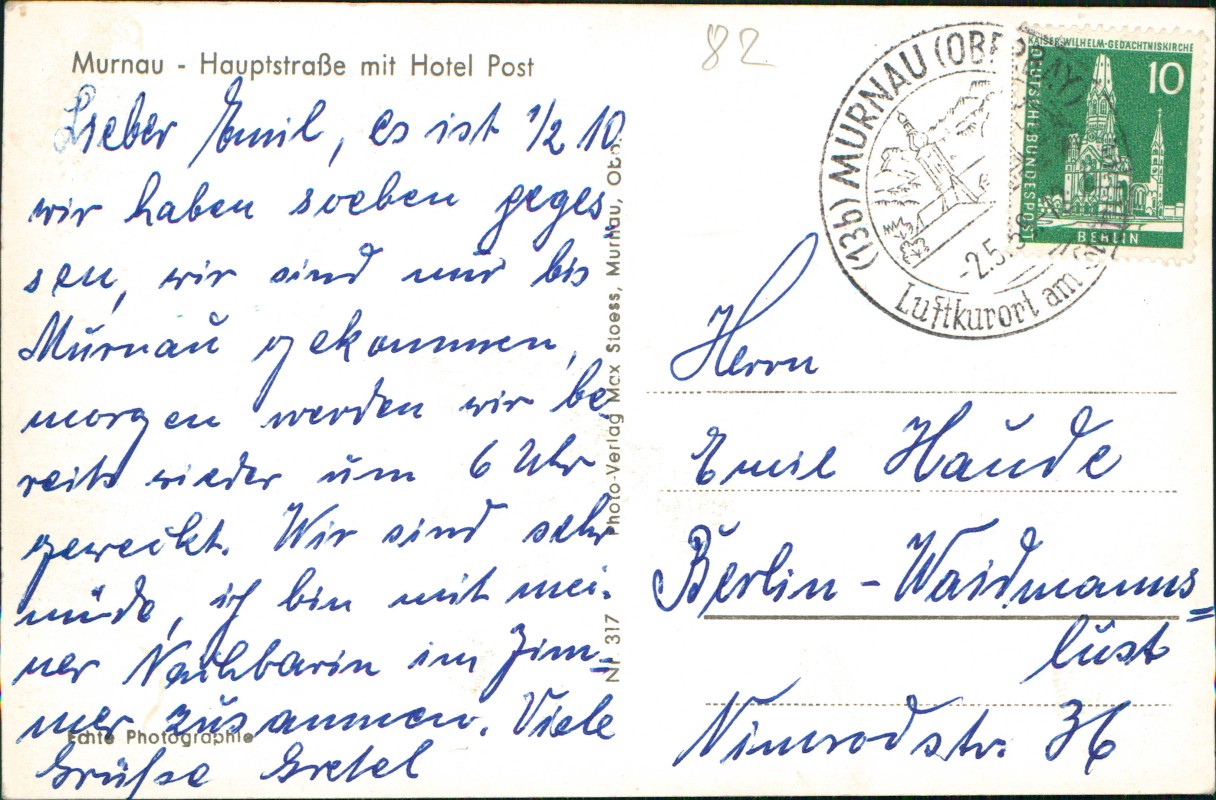 Murnau - Hauptstraße mit Hotel Post
Lieber Emil, es ist 1/2 10
wir haben soeben geges
sen, wir sind nur bis
Murnau gekommen,
morgen werden wir be,
reits wieder um 6 Uhr
geweckt. Wir sind sehr
müde, ich bin mit mei-
ner Nachbarin im Zim=
mer zusammen. Viele
Grüße Gretel
Echte Photographie
Nr. 317 Photo-Verlag Max Stoess, Murnau, Obb.
82
(13b) MURNAU (OBERBAY)
-2.5.
Luftkurort am
KAISER-WILHELM-GEDÄCHTNISKIRCHE
10
DEUTSCHE BUNDESPOST
BERLIN
Herrn
Emil Haude
Berlin - Waidmanns=
lust
Nimrodstr. 36